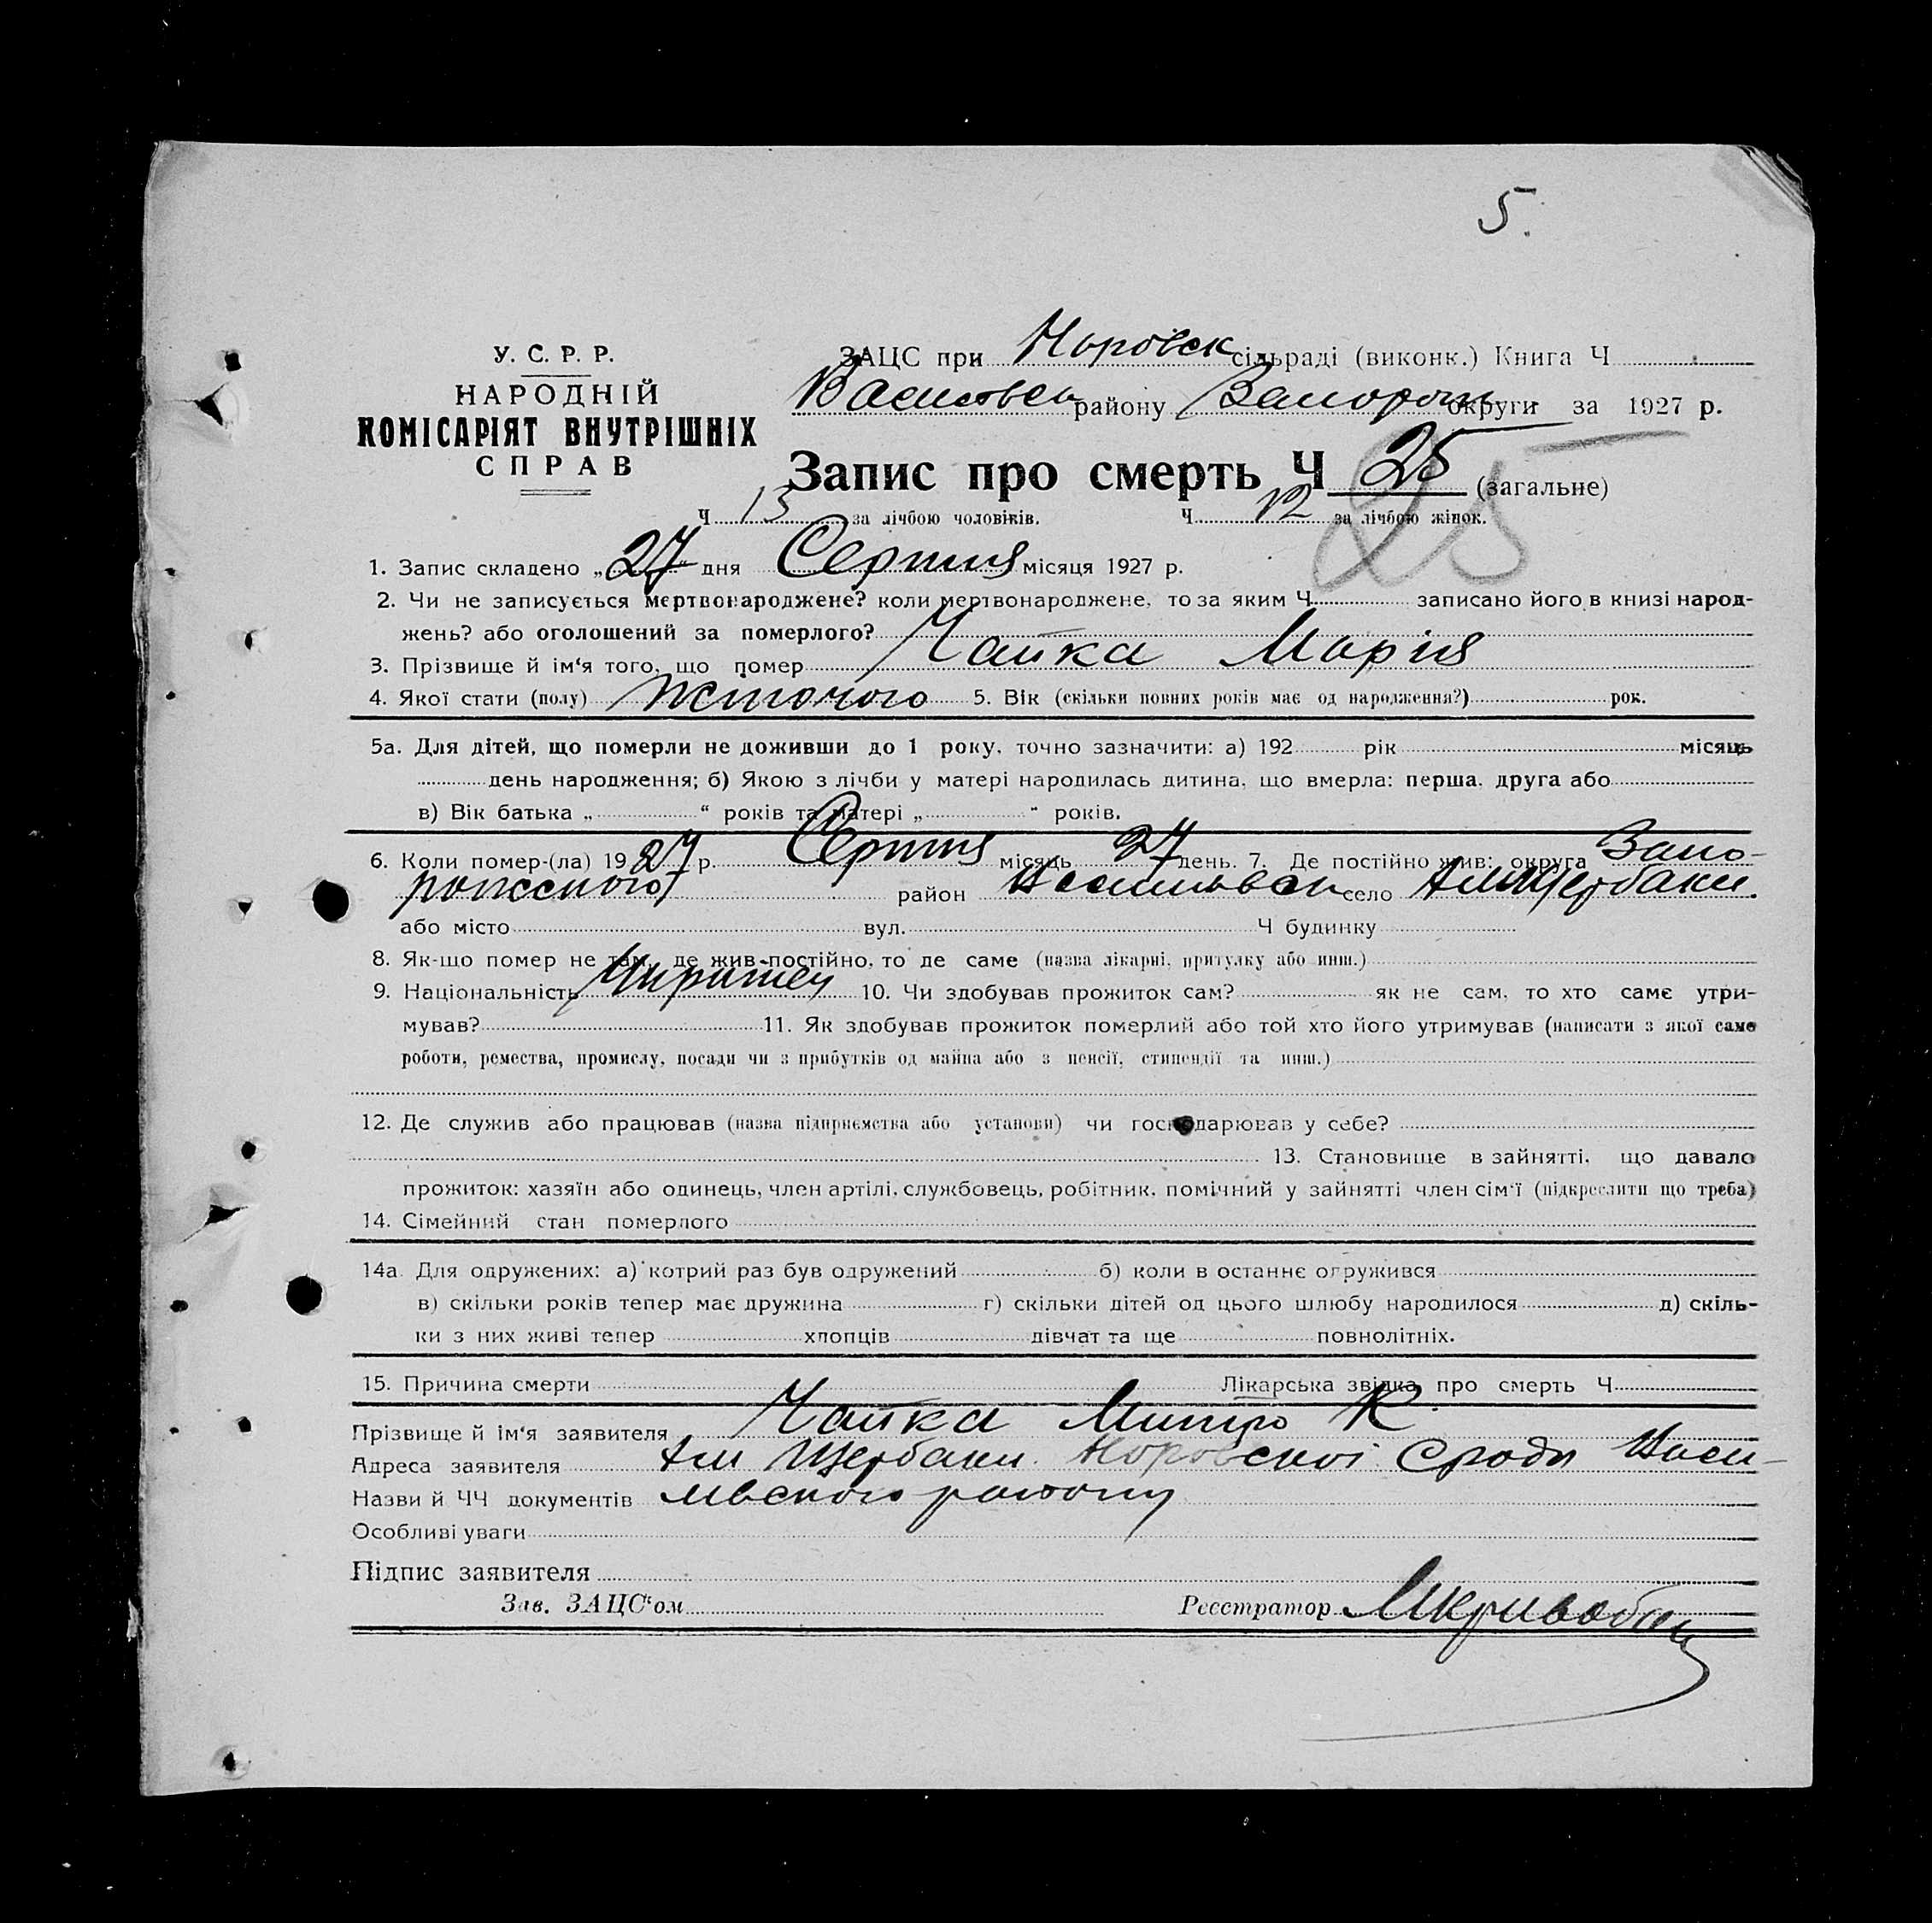 5.
У. С. Р. Р.
НАРОДНІЙ
КОМІСАРІЯТ ВНУТРІШНІХ
СПРАВ
ЗАЦС при Норовск сільраді (виконк.) Книга Ч
района Запорож округи за 1927 р.
Запис про смерть Ч 25 (загальне)
25
Ч 13 за лічбою чоловіків. Ч 12 за лічбою жінок.
1. Запис складено „27“ дня Серпня місяця 1927 р.
2. Чи не записується мертвонароджене? коли мертвонароджене, то за яким Ч записано його в книзі народ-
жень? або оголошений за померлого?
3. Прізвище й ім'я того, що помер Чайка Марія
4. Якої стати (полу) Жіночого 5. Вік (скільки повних років має од народження?) рок.
5а. Для дітей, що померли не доживши до 1 року, точно зазначити: а) 192 рік місяць
день народження; б) Якою з лічби у матері народилась дитина, що вмерла: перша, друга або
в) Вік батька „ “ років та матері „ “ років.
6. Коли помер-(ла) 1927 р. Серпня місяць 27 день. 7. Де постійно жив: округа Запо-
рожского район село Щербаки.
або місто вул. Ч будинку
8. Як-що помер не там, де жив постійно, то де саме (назва лікарні, притулку або инш.)
9. Національність 10. Чи здобував прожиток сам? як не сам, то хто саме утри-
мував? 11. Як здобував прожиток померлий або той хто його утримував (написати з якої саме
роботи, ремества, промислу, посади чи з прибутків од майна або з пенсії, стипендії та инш.)
12. Де служив або працював (назва підприємства або установи) чи господарював у себе?
13. Становище в зайнятті, що давало
прожиток: хазяїн або одинець, член артілі, службовець, робітник, помічний у зайнятті член сім'ї (підкреслити що треба)
14. Сімейний стан померлого
14а. Для одружених: а) котрий раз був одружений б) коли в останнє огружився
в) скільки років тепер має дружина г) скільки дітей од цього шлюбу народилося д) скіль-
ки з них живі тепер хлопців дівчат та ще повнолітніх.
15. Причина смерти Лікарська звідка про смерть Ч
Прізвище й ім'я заявителя Чайка Митро К
Адреса заявителя Щербаки Норовскої Сради Васи-
Назви й ЧЧ документів лівского району
Особливі уваги
Підпис заявителя
Зав. ЗАЦС'ом Реєстратор